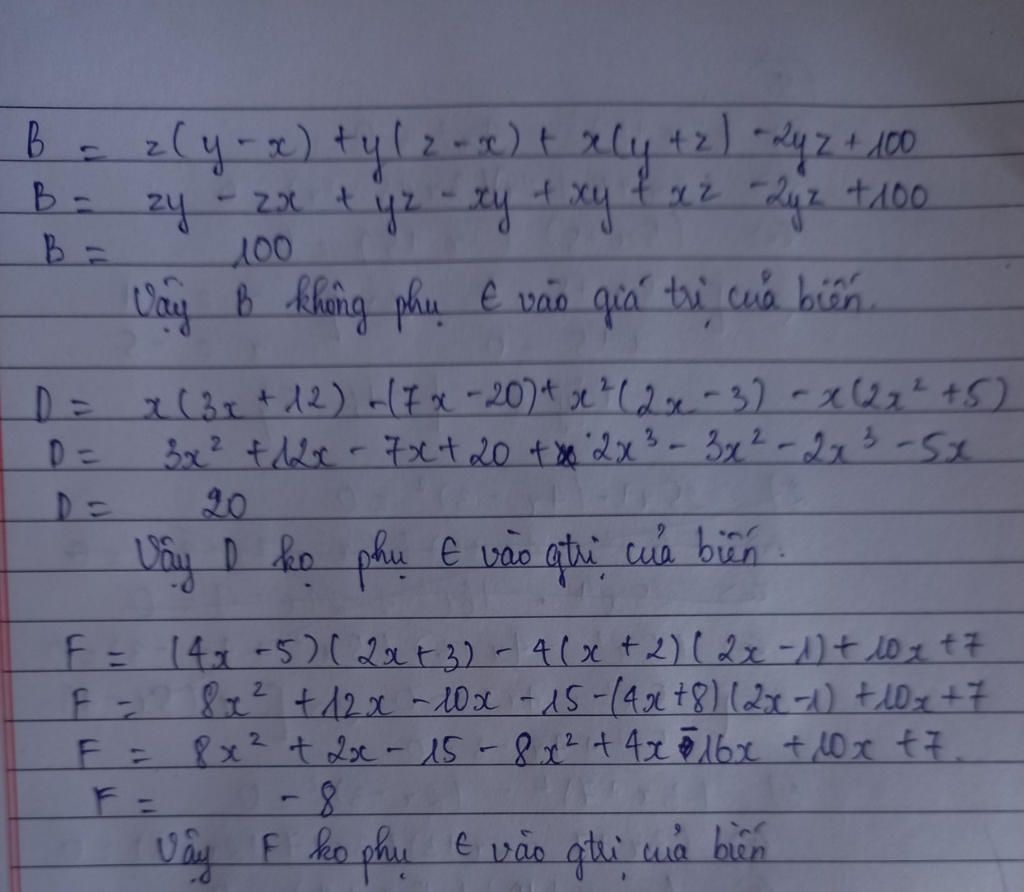 B = z(y - x) + y(z - x) + x(y + z) - 2yz + 100
B = zy - zx + yz - xy + xy + xz - 2yz + 100
B = 100
Vậy B không phụ ∈ vào giá trị của biến.
D = x(3x + 12) - (7x - 20) + x²(2x - 3) - x(2x² + 5)
D = 3x² + 12x - 7x + 20 + 2x³ - 3x² - 2x³ - 5x
D = 20
Vậy D ko phụ ∈ vào gtrị của biến.
F = (4x - 5)(2x + 3) - 4(x + 2)(2x - 1) + 10x + 7
F = 8x² + 12x - 10x - 15 - (4x + 8)(2x - 1) + 10x + 7
F = 8x² + 2x - 15 - 8x² + 4x - 16x + 10x + 7.
F = - 8
Vậy F ko phụ ∈ vào gtrị của biến